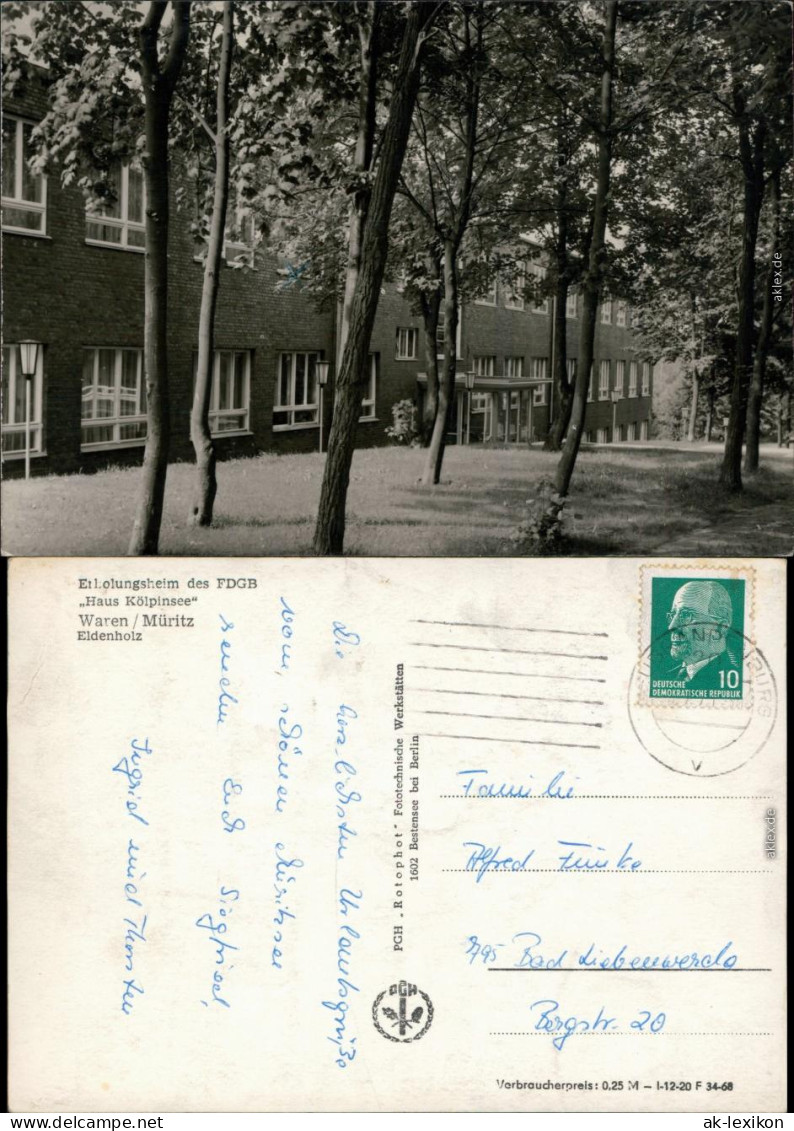 aklex.de
Erholungsheim des FDGB
„Haus Kölpinsee"
Waren / Müritz
Eldenholz
Die herzlichsten Urlaubsgrüße
vom schönen Müritzsee
senden Euch Siegfried,
Ingrid und Thorsten
PGH „Rotophot" Fototechnische Werkstätten
1602 Bestensee bei Berlin
PGH
10
DEUTSCHE
DEMOKRATISCHE REPUBLIK
BURG
V
Familie
Alfred Funke
795 Bad Liebenwerda
Bergstr. 20
aklex.de
Verbraucherpreis: 0,25 M – I-12-20 F 34-68
www.ak-lexikon.de
ak-lexikon